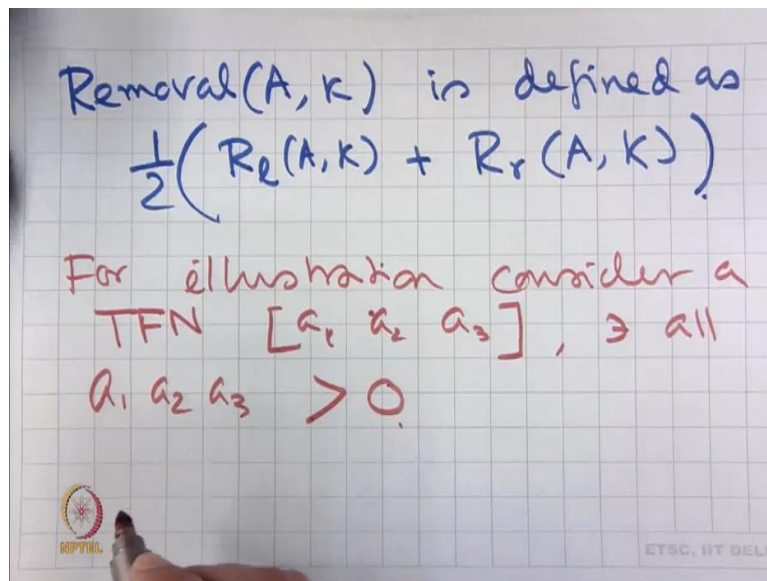 Removal(A, K) is defined as
1/2 ( Rℓ(A, K) + Rr (A, K) ).
For illustration consider a
TFN [a₁ a₂ a₃] , ∋ all
a₁ a₂ a₃ > 0.
NPTEL
ETSC, IIT DEL